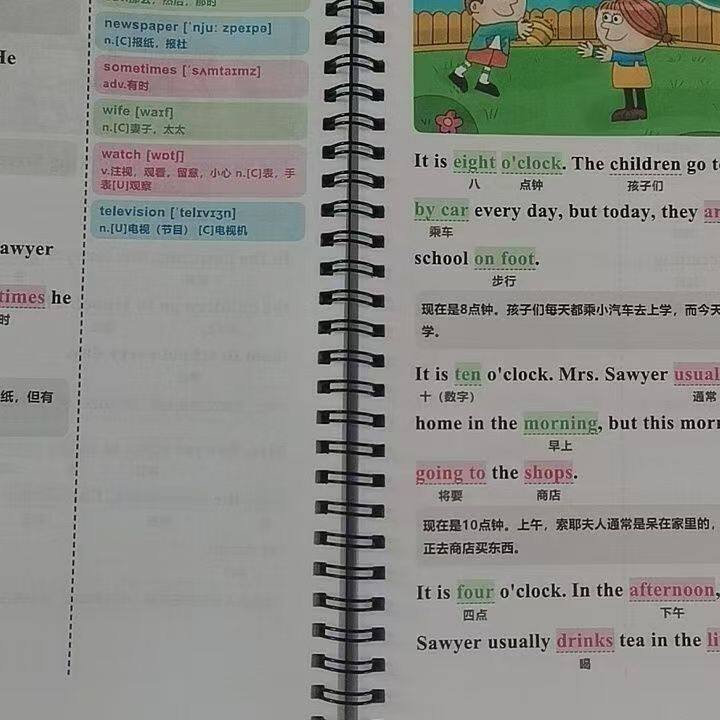 He
awyer
times he
时
纸，但有
newspaper [ˈnjuː zpeɪpə]
n.[C]报纸，报社
sometimes [ˈsʌmtaɪmz]
adv.有时
wife [waɪf]
n.[C]妻子，太太
watch [wɒtʃ]
v.注视，观看，留意，小心 n.[C]表，手
表[U]观察
television [ˈtelɪvɪʒn]
n.[U]电视（节目） [C]电视机
It is eight o'clock. The children go to
八 点钟 孩子们
by car every day, but today, they ar
乘车
school on foot.
步行
现在是8点钟。孩子们每天都乘小汽车去上学，而今天
学。
It is ten o'clock. Mrs. Sawyer usual
十（数字） 通常
home in the morning, but this morn
早上
going to the shops.
将要 商店
现在是10点钟。上午，索耶夫人通常是呆在家里的，
正去商店买东西。
It is four o'clock. In the afternoon,
四点 下午
Sawyer usually drinks tea in the li
喝